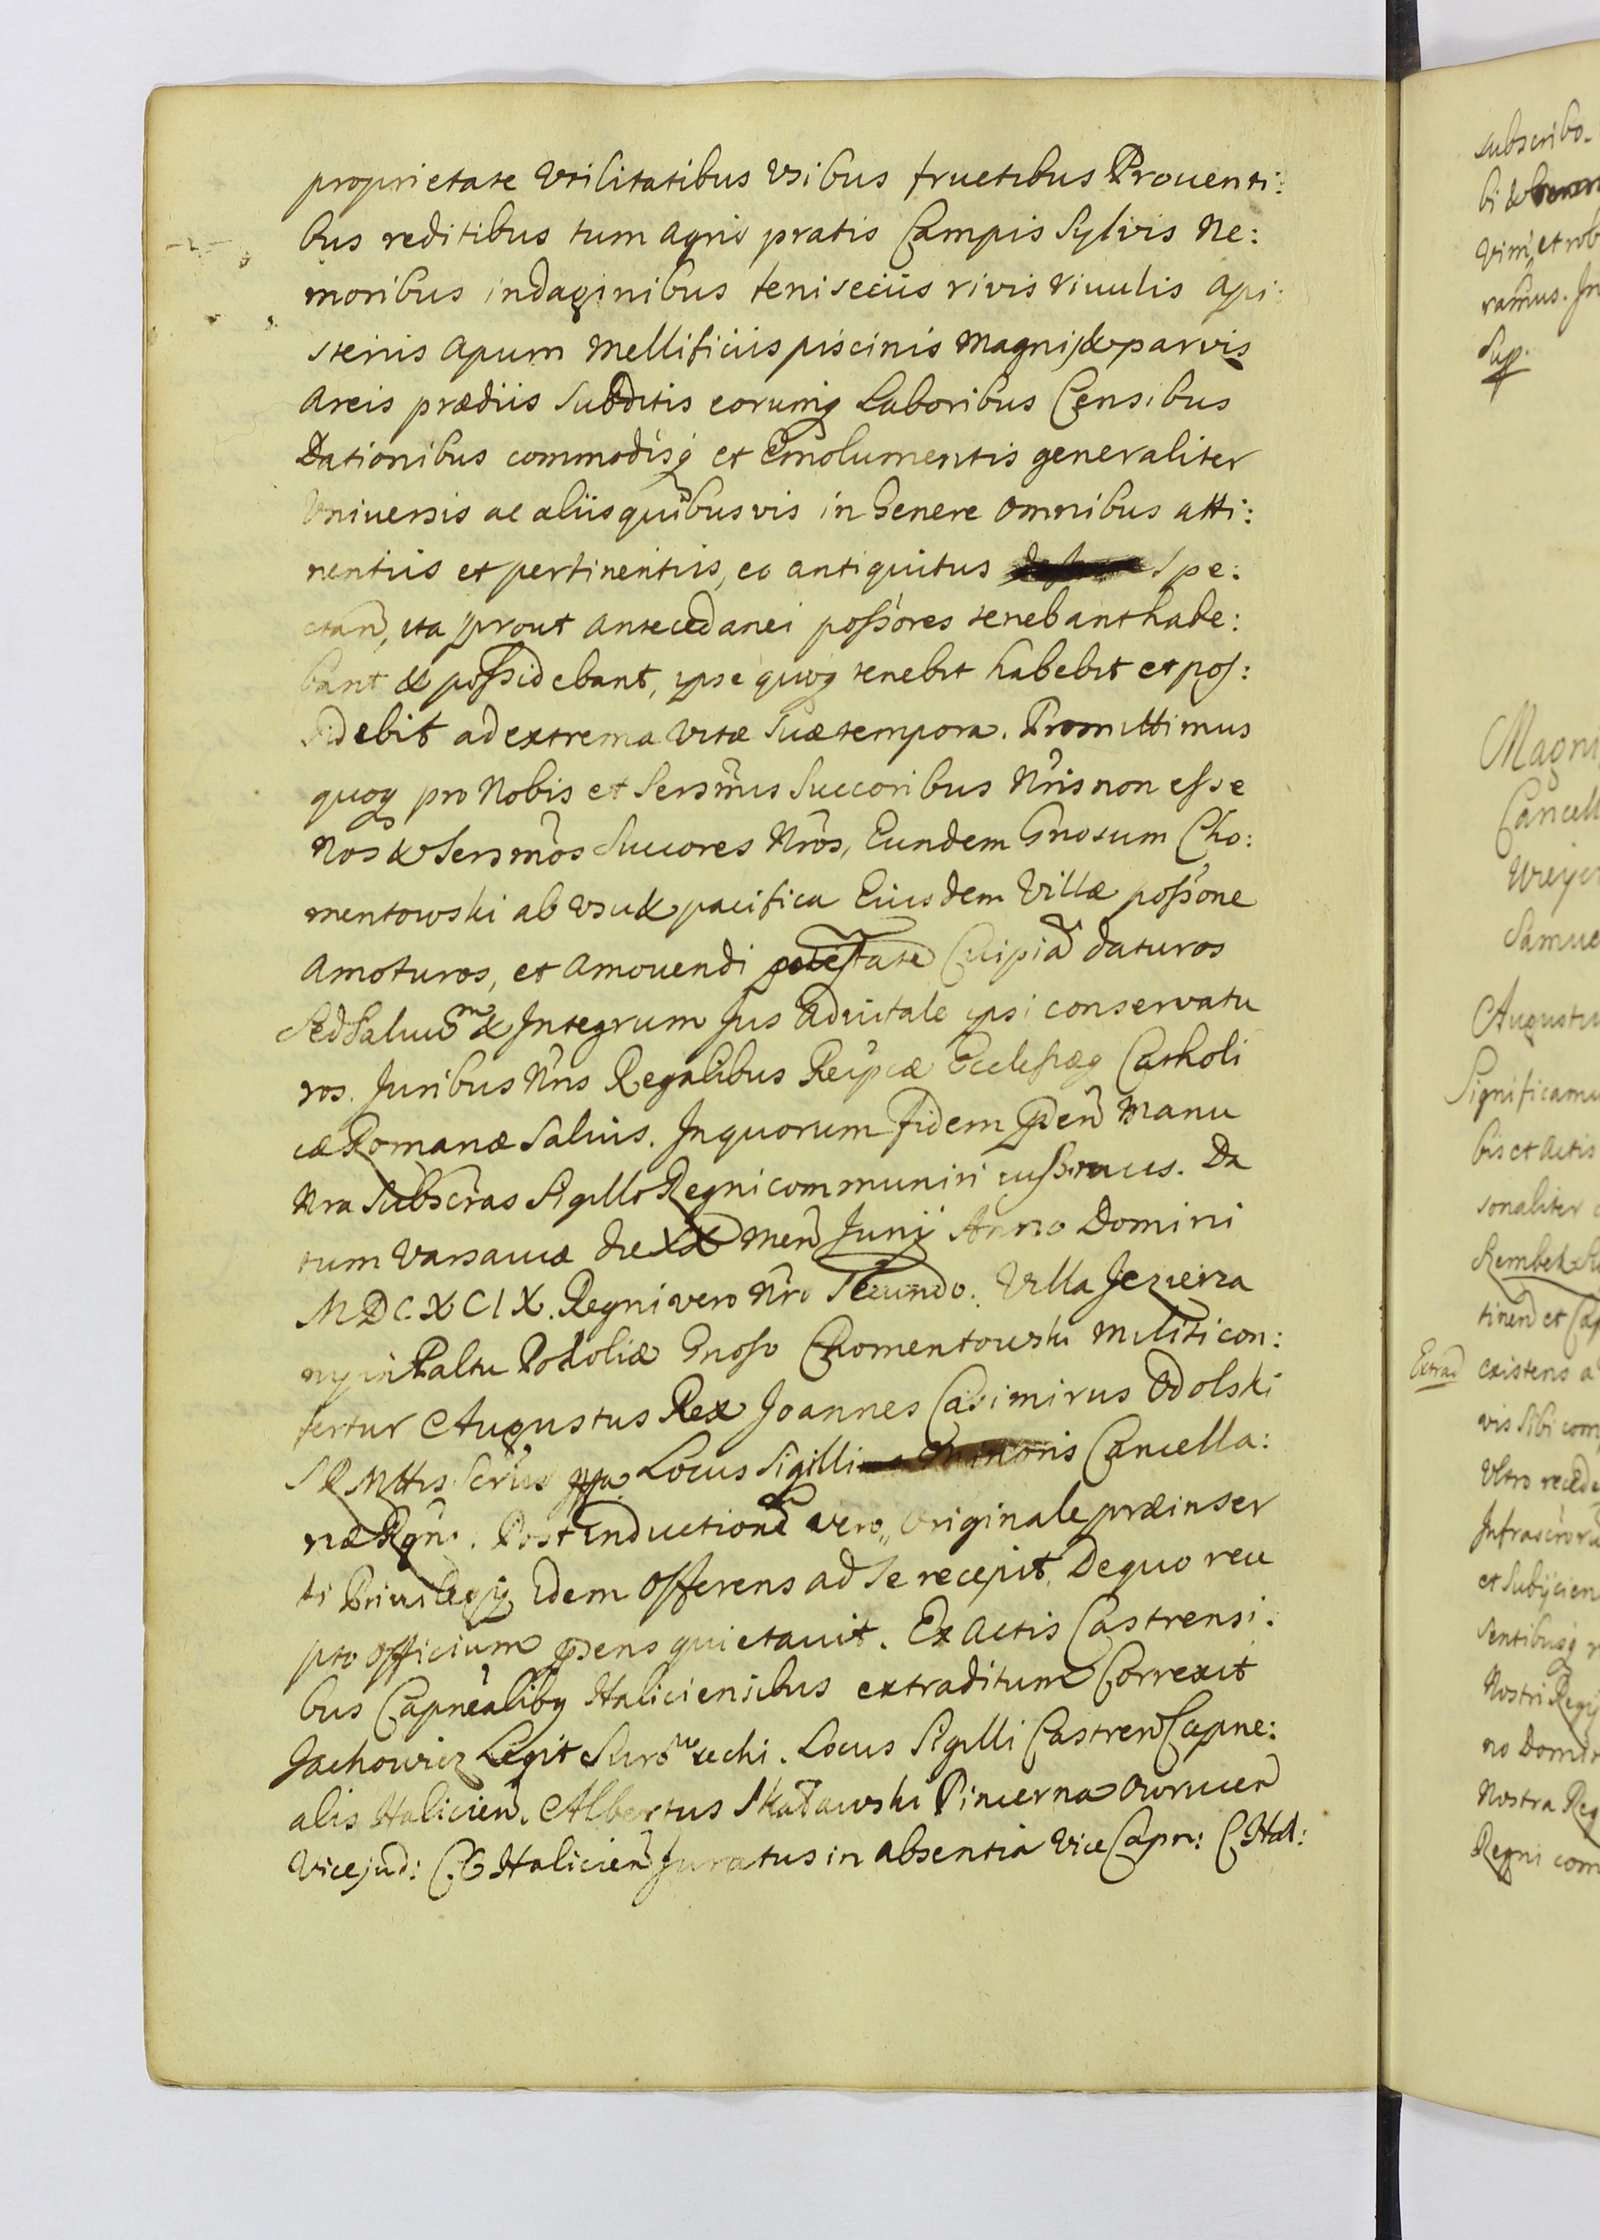 proprietate Vtilitatibus Vsibus fructibus Prouenti:
bus reditibus tum agris pratis Campis Sylvis Ne:
moribus indaginibus feniseciis rivis rivulis api:
steriis apum Mellificiis piscinis magnis & parvis
areis prædiis Subditis eorumq Laboribus Censibus
Dationibus commodisq et Emolumentis generaliter
Vniuersis ac aliis quibusvis in Genere omnibus atti:
nentiis et pertinentiis, eo antiquitus Spe:
ctan, ita prout antecedanei possores tenebant habe:
bant & possidebant, ipse quoq tenebit habebit et pos:
sidebit ad extrema Vitæ Suæ tempora. Promittimus
quoq pro Nobis et Sersmis Succoribus Nris non esse
Nos & Sersmos Succores Nros, Eundem Gnosum Cho:
mentowski ab Vsu & pacifica Eiusdem Villæ possone
amoturos, et amouendi potestate Cuipia daturos
Sed Saluum & Integrum Jus aduitale ipsi conservatu
ros. Juribus Nris Regalibus Reipcæ Ecclesiæq Catholi
cæ Romanæ Saluis. In quorum fidem pden Manu
Nra Subscras Sigillo Regni communiri iussimus. Da
tum Varsauiæ die XX Men Junij Anno Domini
MDCXCIX. Regni vero Nro Secundo. Villa Jezierza
ny in Paltu Podoliæ Gnoso Chomentowski Militi con:
fertur Augustus Rex Joannes Casimirus Odolski
S R Mttis Scrius Locus Sigilli Minoris Cancella:
riæ Rgni. Post Inductione vero, Originale præinser
ti Priuilegij Idem Offerens ad Se recepit, De quo rece
pto officium pdens quietauit. Ex Actis Castrensi:
bus Capnealibq Haliciensibus extraditum Correxit
Jachowicz Legit Locus Sigilli Castren Capne:
alis Halicien. Albertus Skaławski Pincerna Owrucen
Vicejud: C G Halicien Juratus in absentia Vice Capn: C Hal:
subscribo.
Vim et rob
ramus. In
Magni
Cancell
Samue
Augustu
Significamu
bis et Actis
sonaliter
Rembek
tinen et Cap
Extrad existens a
vis Sibi com
Vltro recede
Infrascroru
et Subijcien
Sentibusq
Nostri Regij
no Domi
Nostra Reg
Regni com